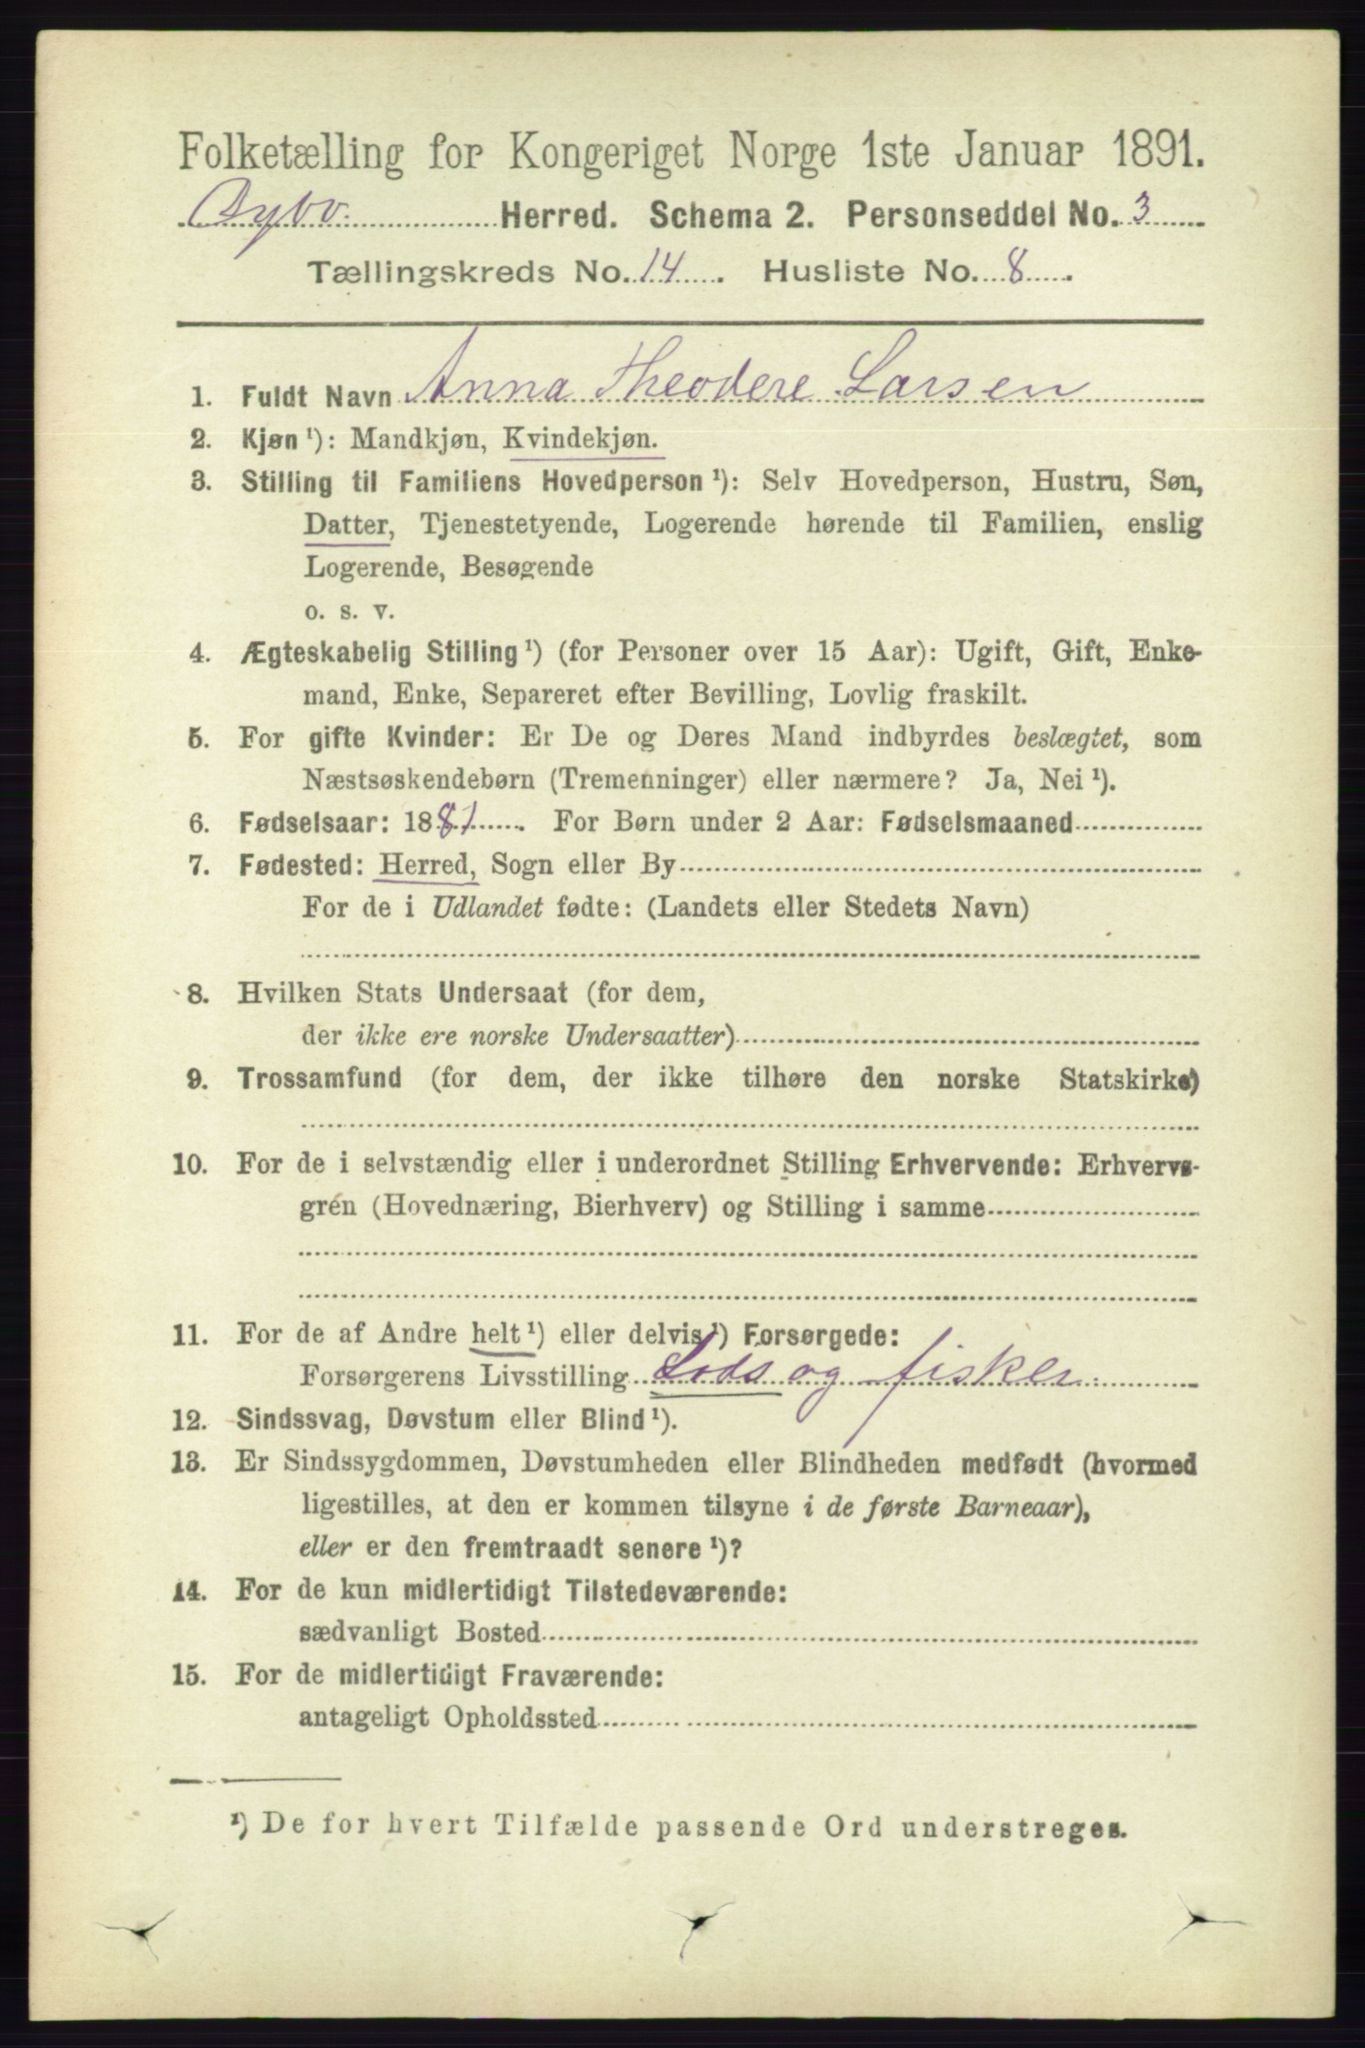 Folketælling for Kongeriget Norge 1ste Januar 1891.
Dybv. Herred. Schema 2. Personseddel No. 3
Tællingskreds No. 14. Husliste No. 8.
1. Fuldt Navn Anna Theodere Larsen
2. Kjøn ¹): Mandkjøn, Kvindekjøn.
3. Stilling til Familiens Hovedperson ¹): Selv Hovedperson, Hustru, Søn,
Datter, Tjenestetyende, Logerende hørende til Familien, enslig
Logerende, Besøgende
o. s. v.
4. Ægteskabelig Stilling ¹) (for Personer over 15 Aar): Ugift, Gift, Enke-
mand, Enke, Separeret efter Bevilling, Lovlig fraskilt.
5. For gifte Kvinder: Er De og Deres Mand indbyrdes beslægtet, som
Næstsøskendebørn (Tremenninger) eller nærmere? Ja, Nei ¹).
6. Fødselsaar: 1881. For Børn under 2 Aar: Fødselsmaaned
7. Fødested: Herred, Sogn eller By
For de i Udlandet fødte: (Landets eller Stedets Navn)
8. Hvilken Stats Undersaat (for dem,
der ikke ere norske Undersaatter)
9. Trossamfund (for dem, der ikke tilhøre den norske Statskirke)
10. For de i selvstændig eller i underordnet Stilling Erhvervende: Erhvervs-
gren (Hovednæring, Bierhverv) og Stilling i samme
11. For de af Andre helt ¹) eller delvis ¹) Forsørgede:
Forsørgerens Livsstilling Lods og fisker.
12. Sindssvag, Døvstum eller Blind ¹).
13. Er Sindssygdommen, Døvstumheden eller Blindheden medfødt (hvormed
ligestilles, at den er kommen tilsyne i de første Barneaar),
eller er den fremtraadt senere ¹)?
14. For de kun midlertidigt Tilstedeværende:
sædvanligt Bosted
15. For de midlertidigt Fraværende:
antageligt Opholdssted
¹) De for hvert Tilfælde passende Ord understreges.